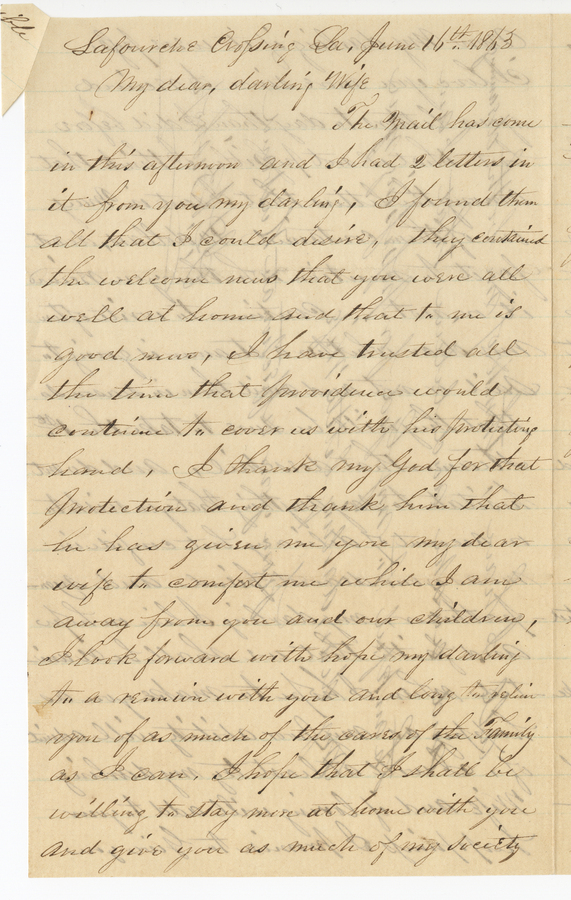 ible
Lafourche Crossing La, June 16th 1863
My dear, darling Wife
The Mail has come
in this afternoon and I had 2 letters in
it from you my darling, I found them
all that I could desire, they contained
the welcome news that you were all
well at home and that to me is
good news, I have trusted all
the time that Providence would
continue to cover us with his protecting
hand, I thank my God for that
protection and thank him that
he has given me you my dear
wife to comfort me while I am
away from you and our children,
I look forward with hope my darling
to a reunion with you and long to reliev
you of as much of the cares of the Family
as I can, I hope that I shall be
willing to stay more at home with you
and give you as much of my society